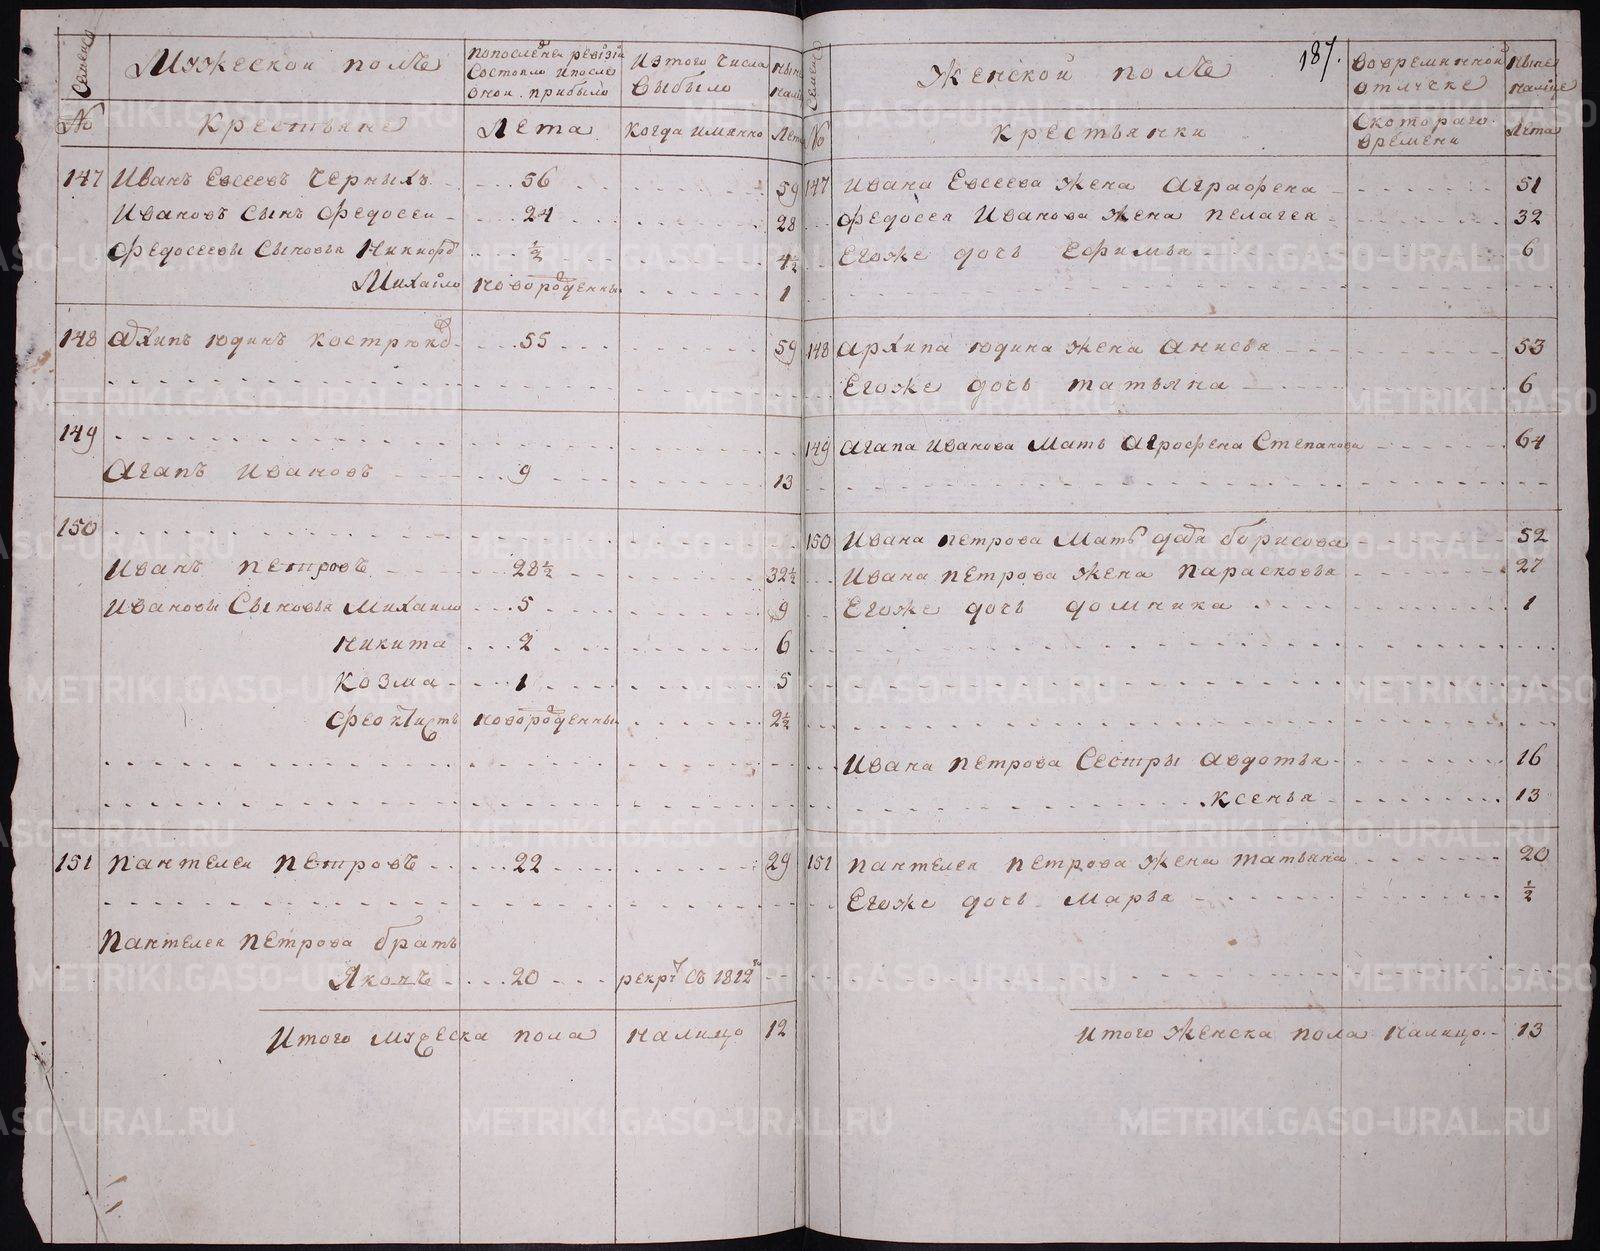 Семей
№
Мужеской полъ
Крестьяне
попоследней ревизiи
Состояло ипосле
оной прибыло
Лета
Изтого числа
выбыло
когда имянно
ныне
налиц
Лета
147 Иванъ Евсеевъ Черныхъ 56 59
Ивановъ Сынъ Федосеи 24 28
Федосеевы Сыновья Никифоръ ½ 4½
Михаило новорожденныи 1
148 Архипъ Юдинъ 55 59
149
Агапъ Ивановъ 9 13
150
Иванъ Петровъ 28½ 32½
Ивановы Сыновья Михаило 5 9
Никита 2 6
Козма 1 5
Феоктистъ новорожденныи 2½
151 Пантелеи Петровъ 22 29
Пантелея Петрова братъ
Яковъ 20 рекрут Съ 1812го
Итого мужеска пола налицо 12
Семей
№
Женской полъ
187.
Крестьянки
вовременной
отлучке
Скотораго
времени
ныне
налице
Лета
147 Ивана Евсеева жена Аграфена 51
Федосея Иванова жена Пелагея 32
Егоже дочь Ефимья 6
148 Архипа Юдина жена Анисья 53
Егоже дочь Татьяна 6
149 Агапа Иванова Мать Агрофена Степанова 64
150 Ивана Петрова Мать Дарья Борисова 52
Ивана Петрова жена Парасковья 27
Егоже дочь Домника 1
Ивана Петрова Сестры Авдотья 16
Ксенья 13
151 Пантелея Петрова жена Татьяна 20
Егоже дочь Марья ½
Итого Женска пола налицо 13
METRIKI.GASO-URAL.RU